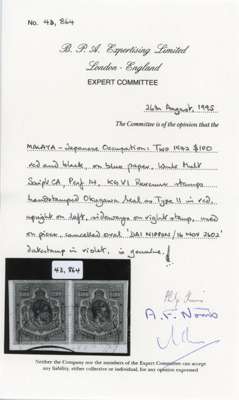 No. 43,864
B. P. A. Expertising Limited
London - England
EXPERT COMMITTEE
26th August, 1995
The Committee is of the opinion that the
MALAYA - Japanese Occupation: Two 1942 $100
red and black, on blue paper, Wmk Mult
Script CA, Perf 14, KGVI Revenue stamps
handstamped Okugawa Seal as Type II in red,
upright on left, sideways on right stamp, used
on piece, cancelled oval 'DAI NIPPON/16 NOV 2602'
datestamp in violet, is genuine.
43,864
Neither the Company nor the members of the Expert Committee can accept
any liability, either collective or individual, for any opinion expressed